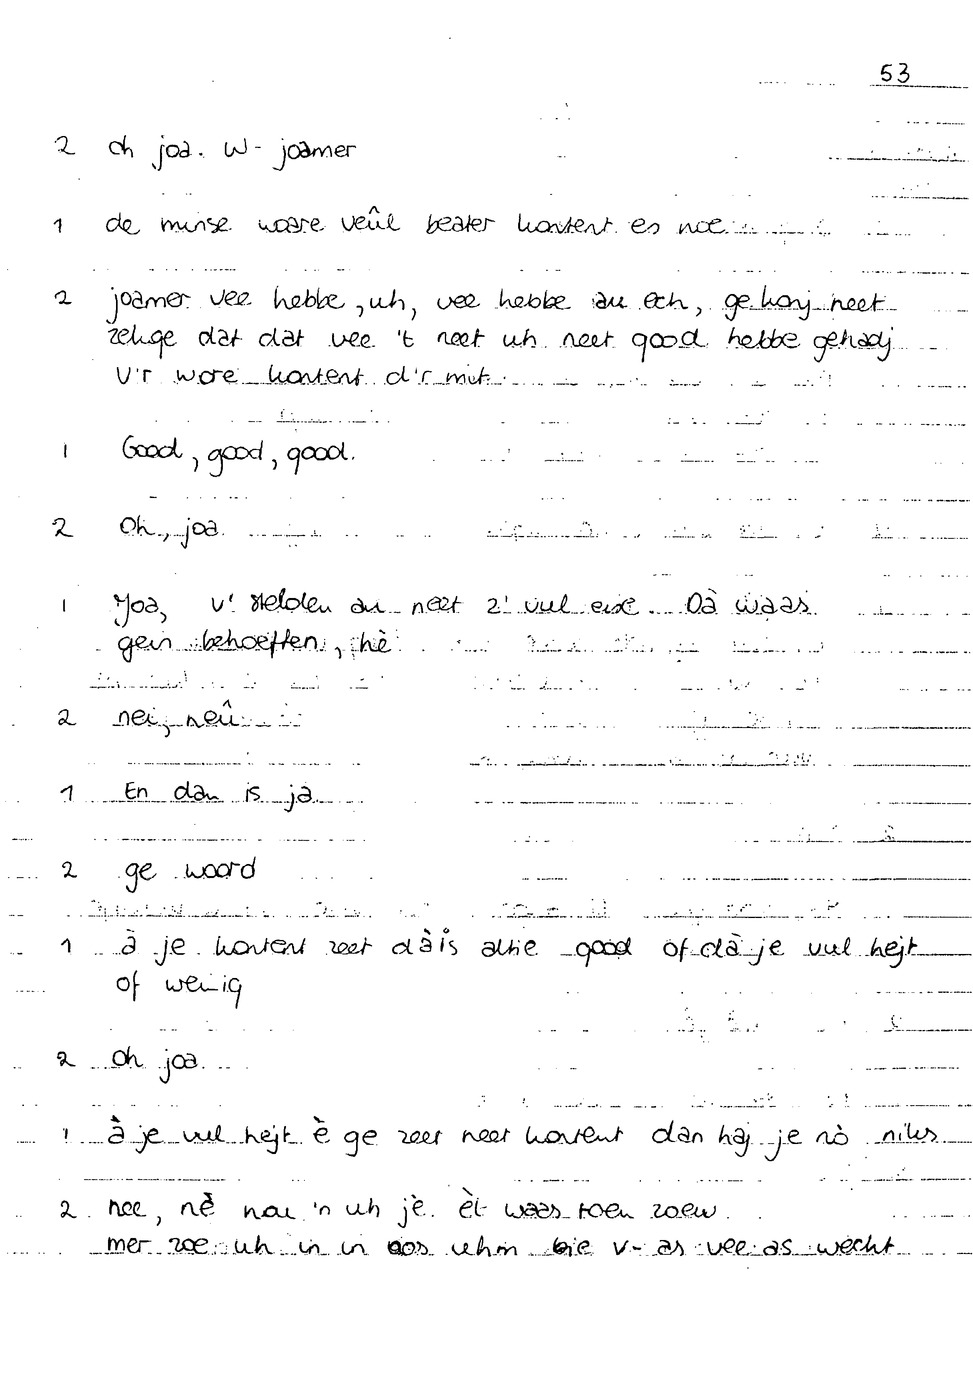 53
2 oh joa. w- joamer
1 de minse woare veûl beater kontent es noe
2 joamer vee hebbe, uh, vee hebbe au ech, ge konj neet
zekge dat dat vee 't neet uh neet good hebbe gehadj
v'r wore kontent d'r mit
1 Good, good, good.
2 Oh, joa
1 Joa, v' stelden au neet z' vul eise. Dà waas
gein behoeften, hè
2 nei, neû
1 En dan is ja
2 ge woord
1 à je kontent zeet dà is altie good of dà je vul hejt
of wenig
2 oh joa
1 à je vul hejt è ge zeet neet kontent dan haj je nò niks
2 nee, nè nou 'n uh jè. èt waas toen zoew
mer zoe uh in in oos uhm bie v- as vee as wecht